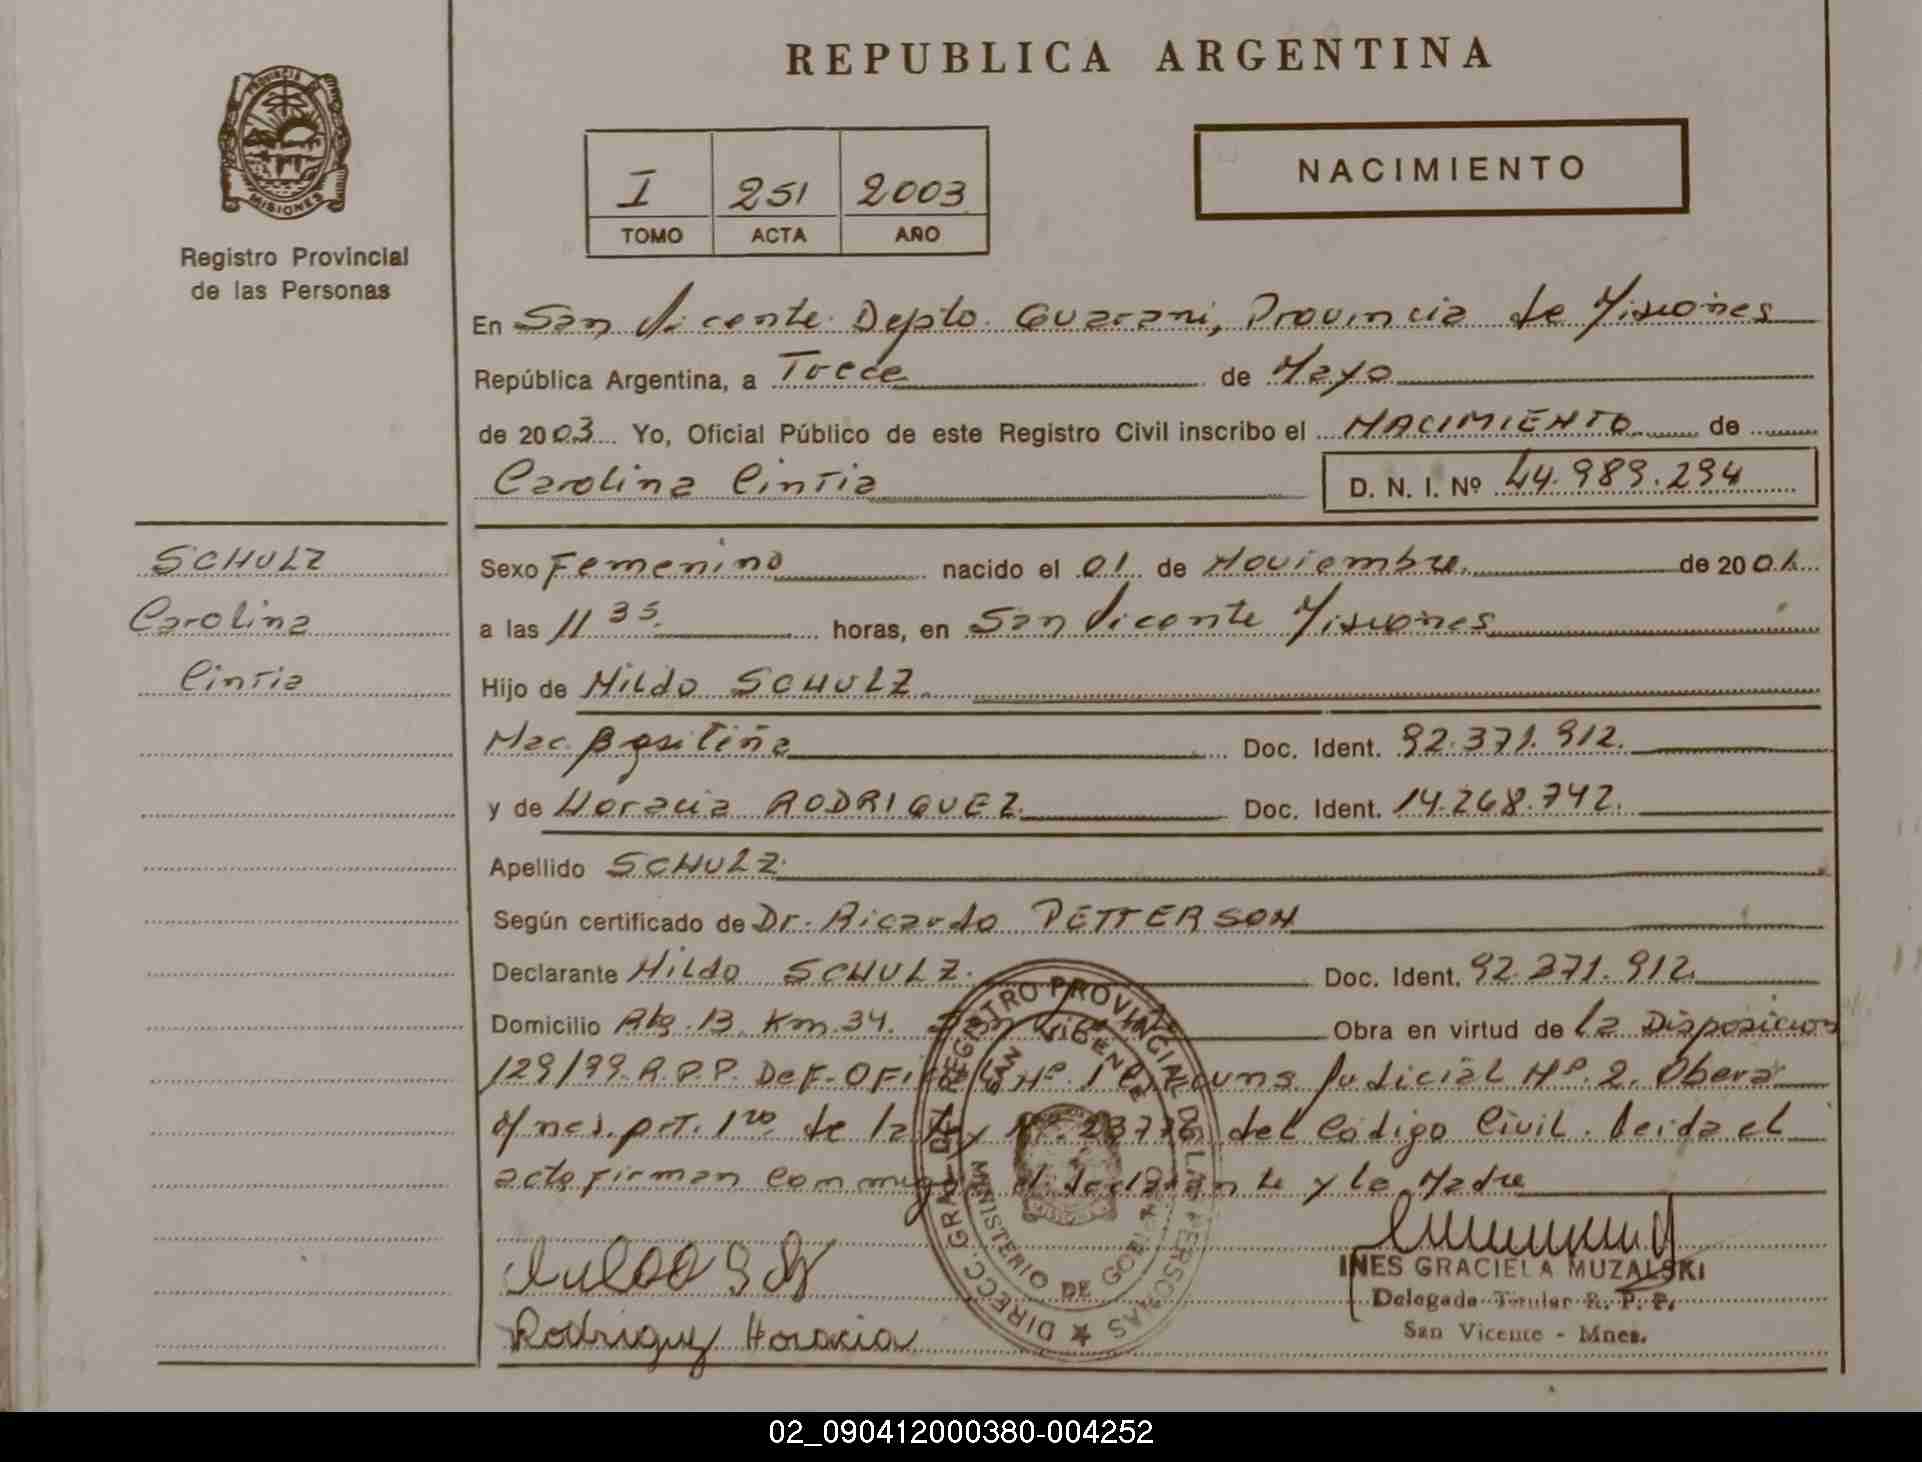 REPUBLICA ARGENTINA
PROVINCIA DE MISIONES
Registro Provincial
de las Personas
I 251 2003
TOMO ACTA AÑO
NACIMIENTO
En San Vicente Depto. Guarani, Provincia de Misiones
República Argentina, a Trece de Mayo
de 2003 Yo, Oficial Público de este Registro Civil inscribo el NACIMIENTO de
Carolina Cintia D. N. I. Nº 44.989.294
SCHULZ
Carolina
Cintia
Sexo Femenino nacido el 01 de Noviembre de 2001
a las 11 35 horas, en San Vicente Misiones
Hijo de Hildo SCHULZ
Nac. Doc. Ident. 92.371.912.
y de Horacia RODRIGUEZ Doc. Ident. 14.268.742.
Apellido SCHULZ
Según certificado de Dr. Ricardo PETTERSON
Declarante Hildo SCHULZ. Doc. Ident. 92.371.912.
Domicilio Km. 34. San Vicente Obra en virtud de la Disposicion
129/99 R.P.P. Def. Oficial Nº. 1 Judicial Nº. 2. Obera
Mnes. 1ro de la Ley Nº. del Código Civil. Leida el
acta firman conmigo el declarante y la Madre
Rodriguez Horacia
DIRECC. GRAL. DEL REGISTRO PROVINCIAL DE LAS PERSONAS
SAN VICENTE
MINISTERIO DE GOBIERNO
INES GRACIELA MUZALSKI
Delegada Titular R. P. P.
San Vicente - Mnes.
02_090412000380-004252